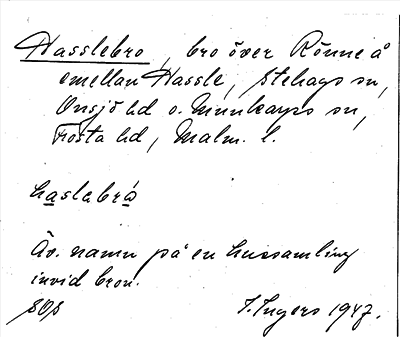 Hasslebro, bro över Rönne å
emellan Hassle, Stehags sn,
Onsjö hd o. Munkarps sn,
Frosta hd, Malm. l.
haslabró
Äv. namn på en hussamling
invid bron.
I. Ingers 1947.